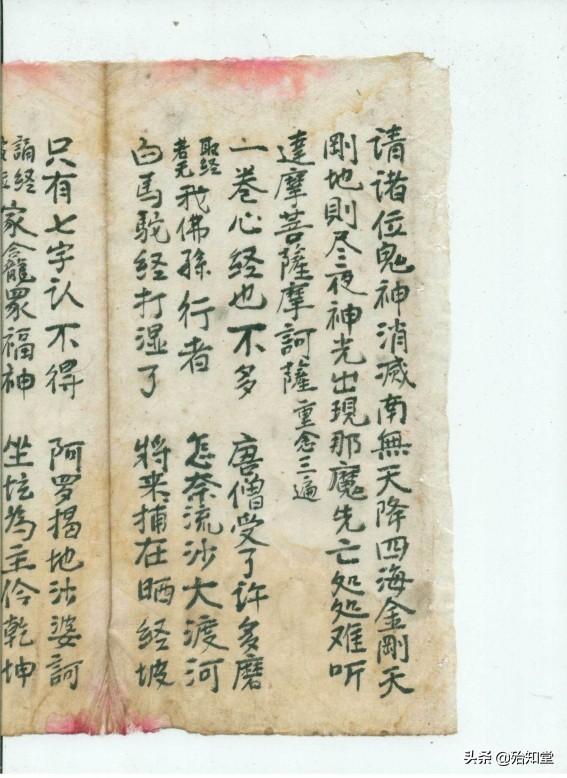 請诸位鬼神消滅南無天降四海金剛天
剛地則尽夜神光出現那魔先亡処処难听
達摩菩薩摩訶薩 重念三遍
一卷心经也不多 唐僧受了许多磨
取经若无我佛孫行者 怎奈流沙大渡河
白馬駝经打湿了 將来捕在晒经坡
只有七字认不得 阿罗揭地沙婆訶
誦经家龕眾福神 坐坛為主伶乾坤
头条 @殆知堂